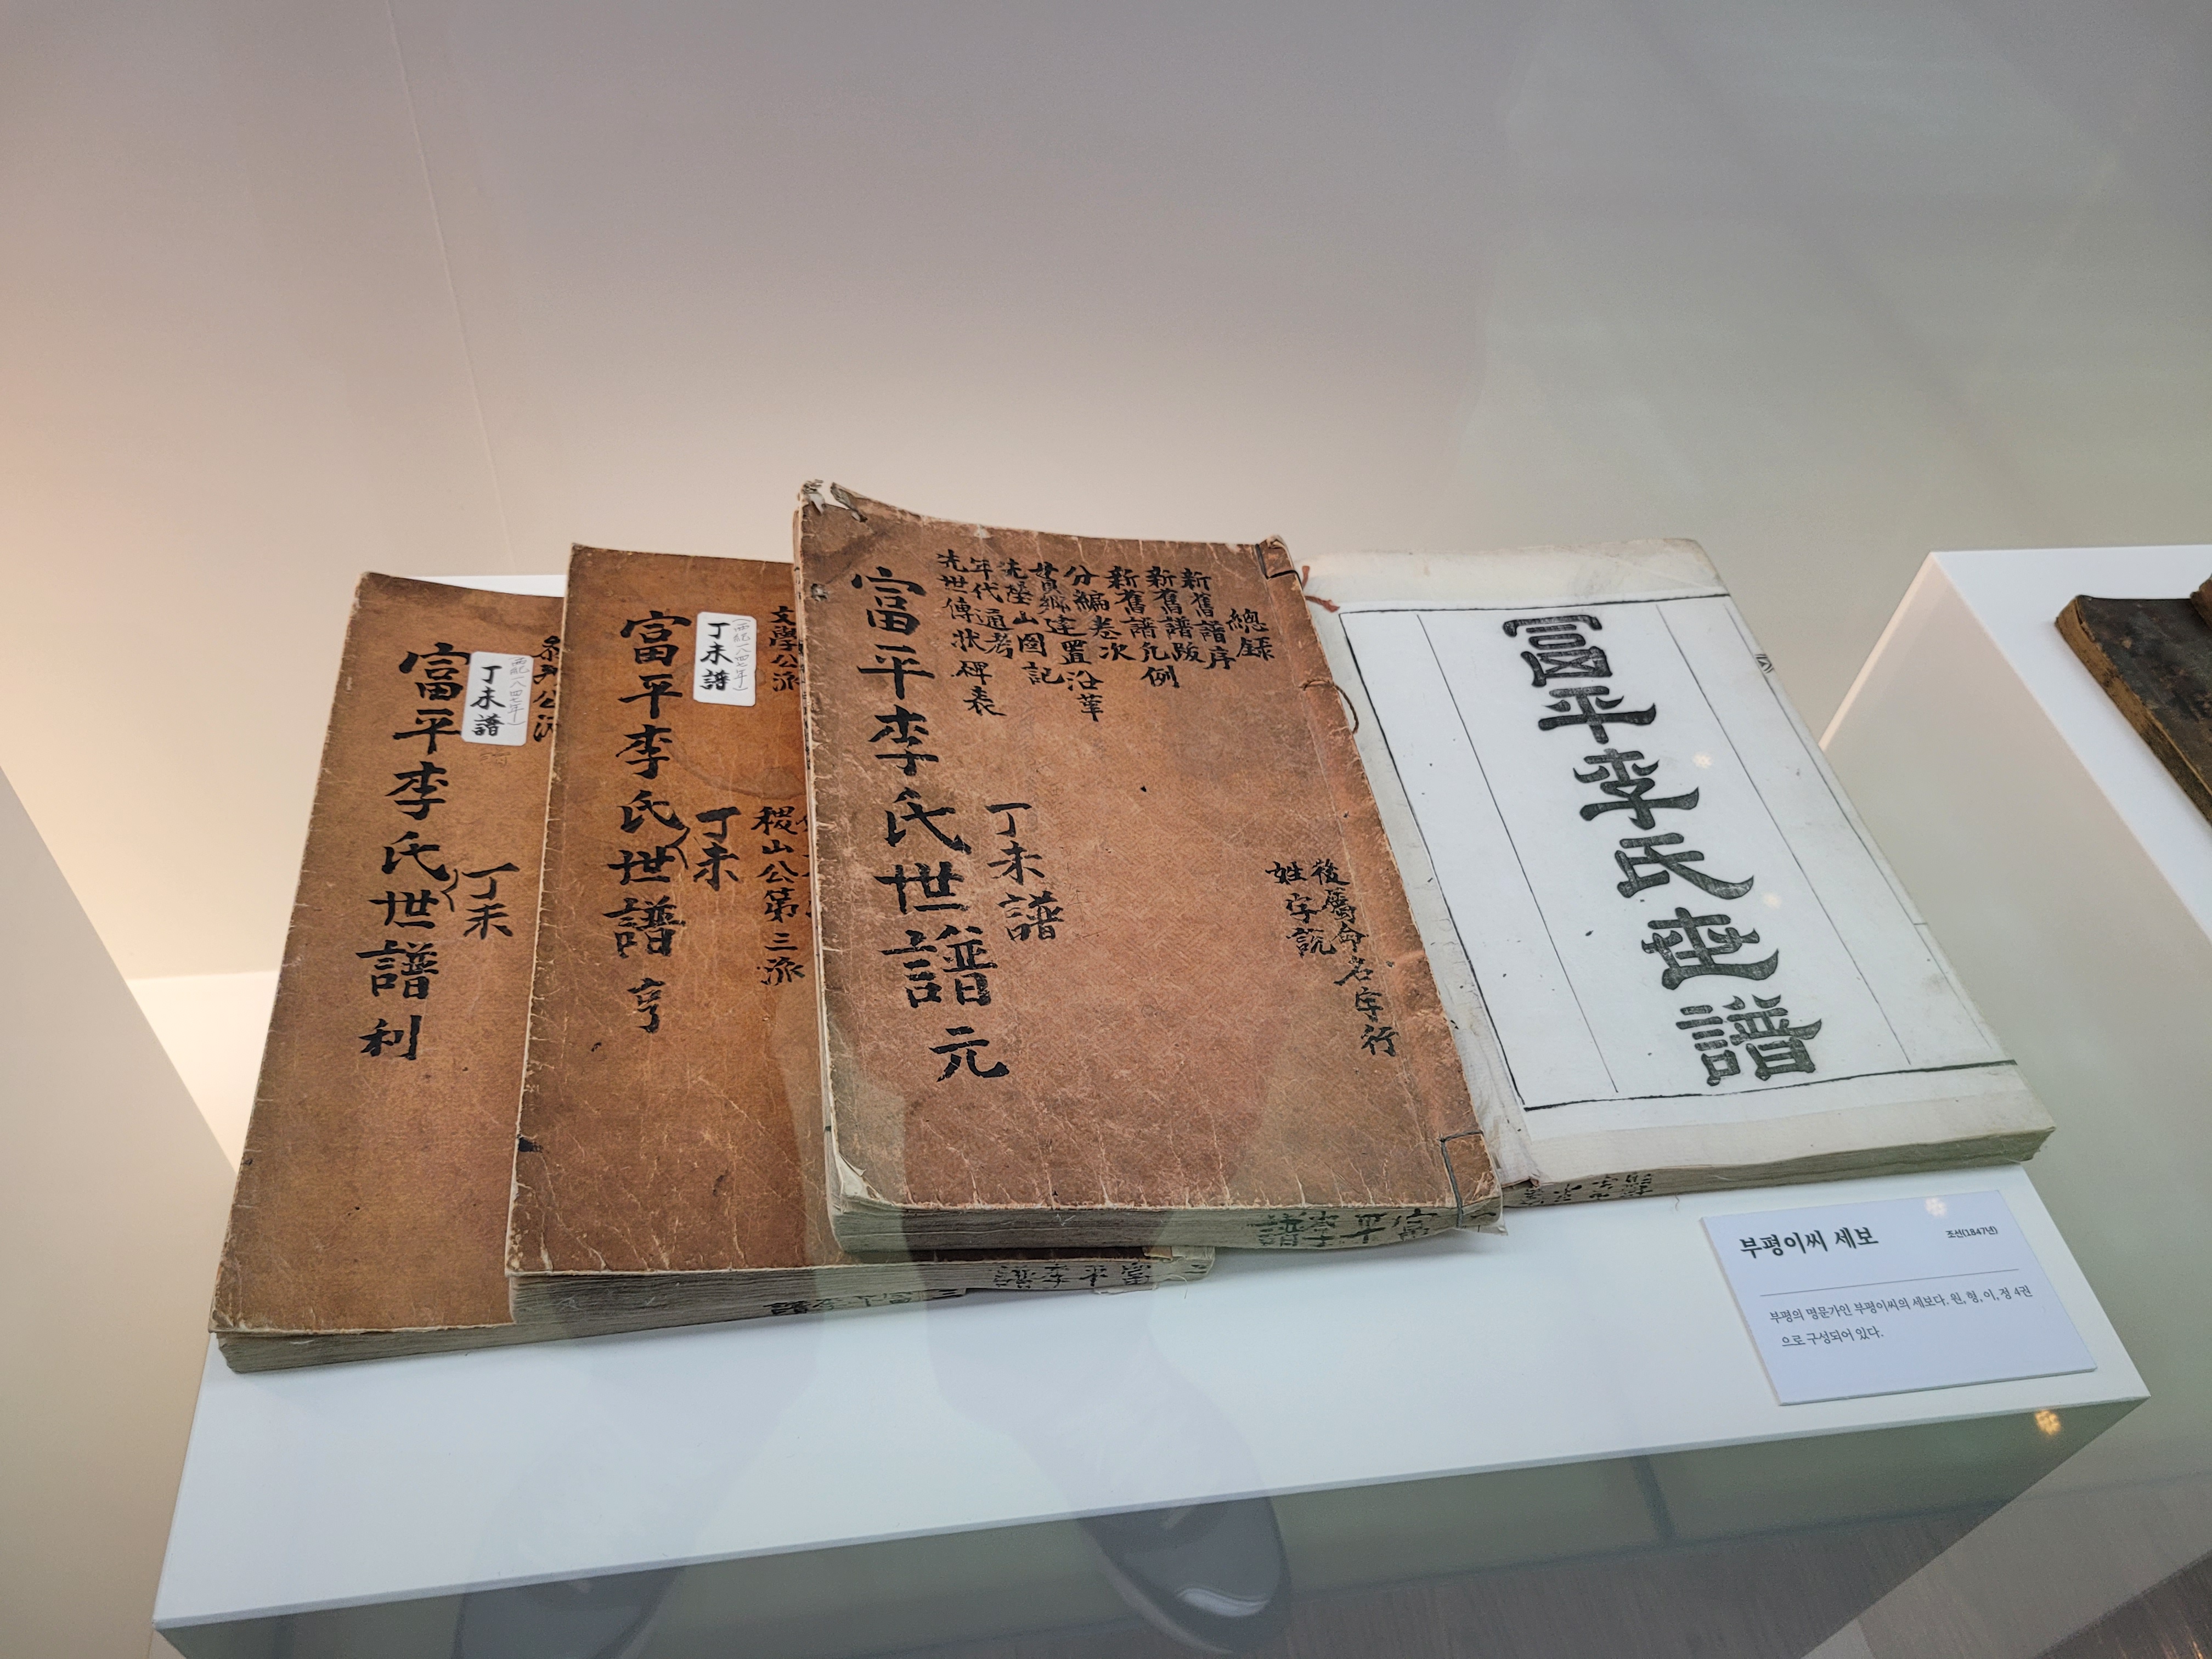 富平李氏世譜 利
丁未
丁未譜
公派
富平李氏世譜 亨
丁未
丁未譜
(西紀一八四七年)
文學公派
稷山公第三派
富平李氏世譜 元
丁未譜
總錄
新舊譜序
新舊譜跋
新舊譜凡例
分編卷次
貫鄕建置沿革
先塋山圖記
年代通考
先世傳狀碑表
後屬命名字行
姓字說
富平李氏世譜
부평이씨 세보
조선(1847년)
부평의 명문가인 부평이씨의 세보다. 원, 형, 이, 정 4권
으로 구성되어 있다.